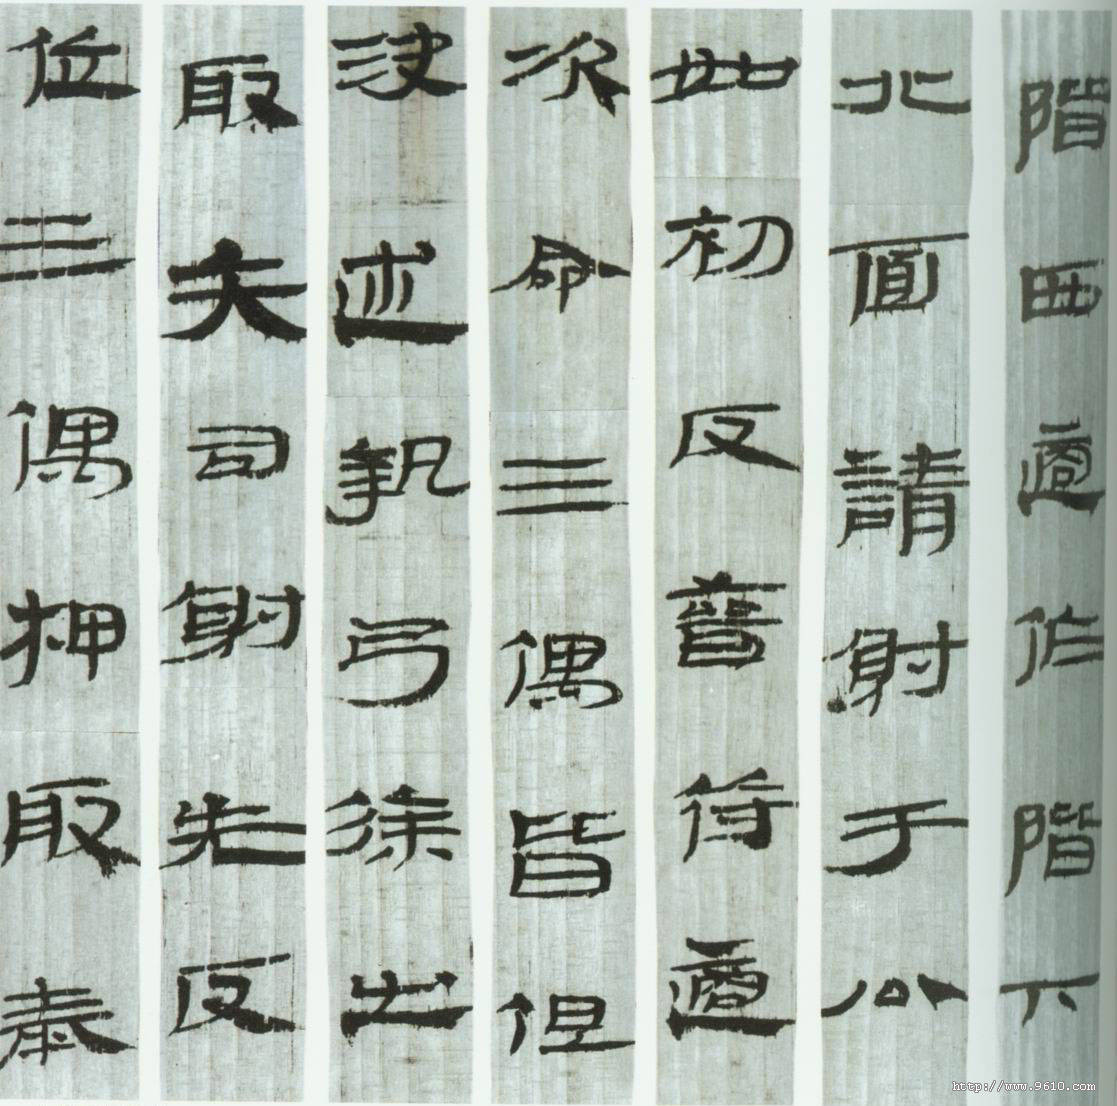 階西適作階下
北面請射于公
如初反晉適
次命三偶皆但
決述執弓徐出
取矢司射先反
位三偶押取
http://www.9610.com